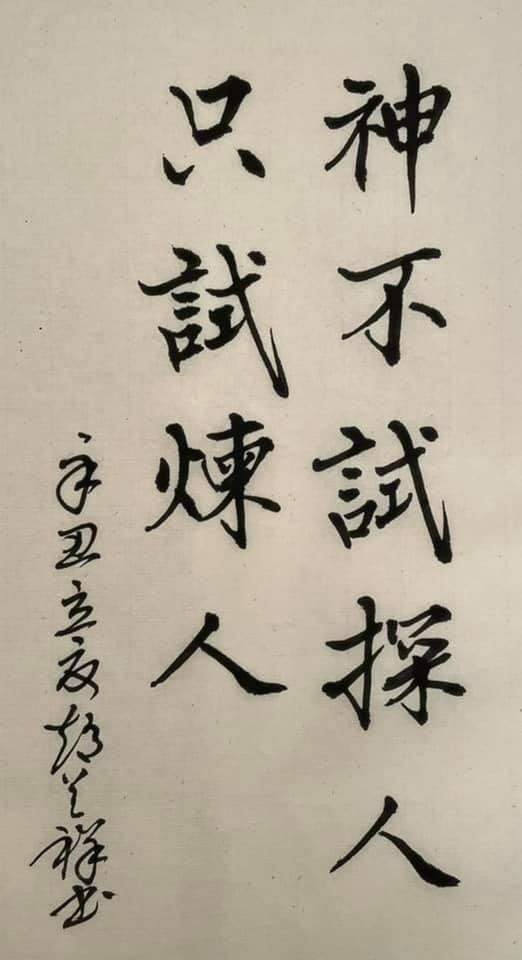 神不試探人
只試煉人
辛丑立夏趙芝祥书